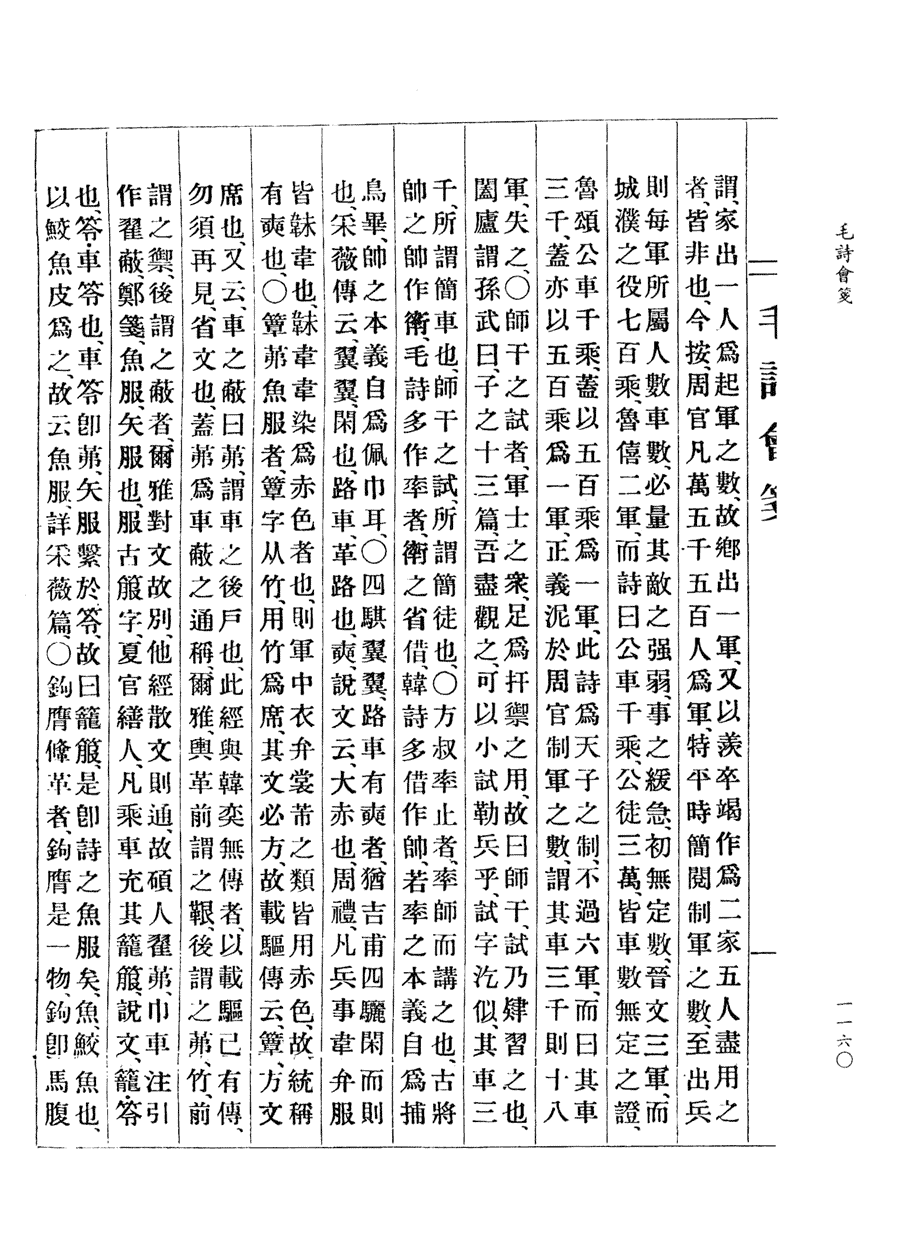 毛詩會箋
一一六〇
毛詩會箋
謂、家出一人爲起軍之數、故鄉出一軍、又以羨卒竭作爲二家五人盡用之
者、皆非也、今按、周官凡萬五千五百人爲軍、特平時簡閱制軍之數、至出兵
則每軍所屬人數車數、必量其敵之强弱、事之緩急、初無定數、晉文三軍、而
城濮之役七百乘、魯僖二軍、而詩曰公車千乘、公徒三萬、皆車數無定之證、
魯頌公車千乘、蓋以五百乘爲一軍、此詩爲天子之制、不過六軍、而曰其車
三千、蓋亦以五百乘爲一軍、正義泥於周官制軍之數、謂其車三千則十八
軍、失之、〇師干之試者、軍士之衆、足爲扞禦之用、故曰師干、試乃肄習之也、
闔廬謂孫武曰、子之十三篇、吾盡觀之、可以小試勒兵乎、試字汔似、其車三
千、所謂簡車也、師干之試、所謂簡徒也、〇方叔率止者、率師而講之也、古將
帥之帥作𧗿、毛詩多作率者、𧗿之省借、韓詩多借作帥、若率之本義自爲捕
鳥畢、帥之本義自爲佩巾耳、〇四騏翼翼、路車有奭者、猶吉甫四驪閑而則
也、采薇傳云、翼翼、閑也、路車、革路也、奭、說文云、大赤也、周禮、凡兵事韋弁服
皆韎韋也、韎韋韋染爲赤色者也、則軍中衣弁裳芾之類皆用赤色、故統稱
有奭也、〇簟茀魚服者、簟字从竹、用竹爲席、其文必方、故載驅傳云、簟、方文
席也、又云、車之蔽曰茀、謂車之後戶也、此經與韓奕無傳者、以載驅已有傳、
勿須再見、省文也、蓋茀爲車蔽之通稱、爾雅、輿革前謂之鞎、後謂之茀、竹、前
謂之禦、後謂之蔽者、爾雅對文故別、他經散文則通、故碩人翟茀、巾車注引
作翟蔽、鄭箋、魚服、矢服也、服古箙字、夏官繕人、凡乘車充其籠箙、說文、籠、笭
也、笭、車笭也、車笭卽茀、矢服繫於笭、故曰籠箙、是卽詩之魚服矣、魚、鮫魚也、
以鮫魚皮爲之、故云魚服、詳采薇篇、〇鉤膺鞗革者、鉤膺是一物、鉤卽馬腹